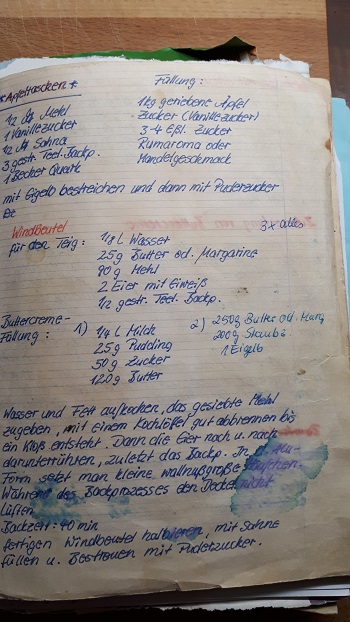 * Apfeltaschen *
1/2 Mehl
1 Vanillezucker
1/2 Sahna
3 gestr. Teel. Backp.
1 Becker Quark
Füllung:
1kg geriebene Äpfel
Zucker (Vanillezucker)
3-4 Eßl. Zucker
Rumaroma oder
Mandelgeschmack
mit Eigelb bestreichen und dann mit Puderzucker
3x alles
Windbeutel
für den Teig: 1/8 L Wasser
25g Butter od. Margarine
90g Mehl
2 Eier mit Eiweiß
1/2 gestr. Teel. Backp.
Buttercreme-
Füllung: 1) 1/4 L Milch
25g Pudding
50g Zucker
120g Butter
2) 250g Butter od. Marg
200g Staubz.
1 Eigelb
Wasser und Fett aufkochen, das gesiebte Mehl
zugeben, mit einem Kochlöffel gut abbrennen bis
ein Kloß entsteht. Dann die Eier nach u. nach
darunterrühren, zuletzt das Backp. In d.
Form setzt man kleine wallnußgroße Häufchen.
Während des Backprozesses den Deckel nicht
lüften
Backzeit: 40 min
fertigen Windbeutel halbieren, mit Sahne
füllen u. Bestreuen mit Puderzucker.